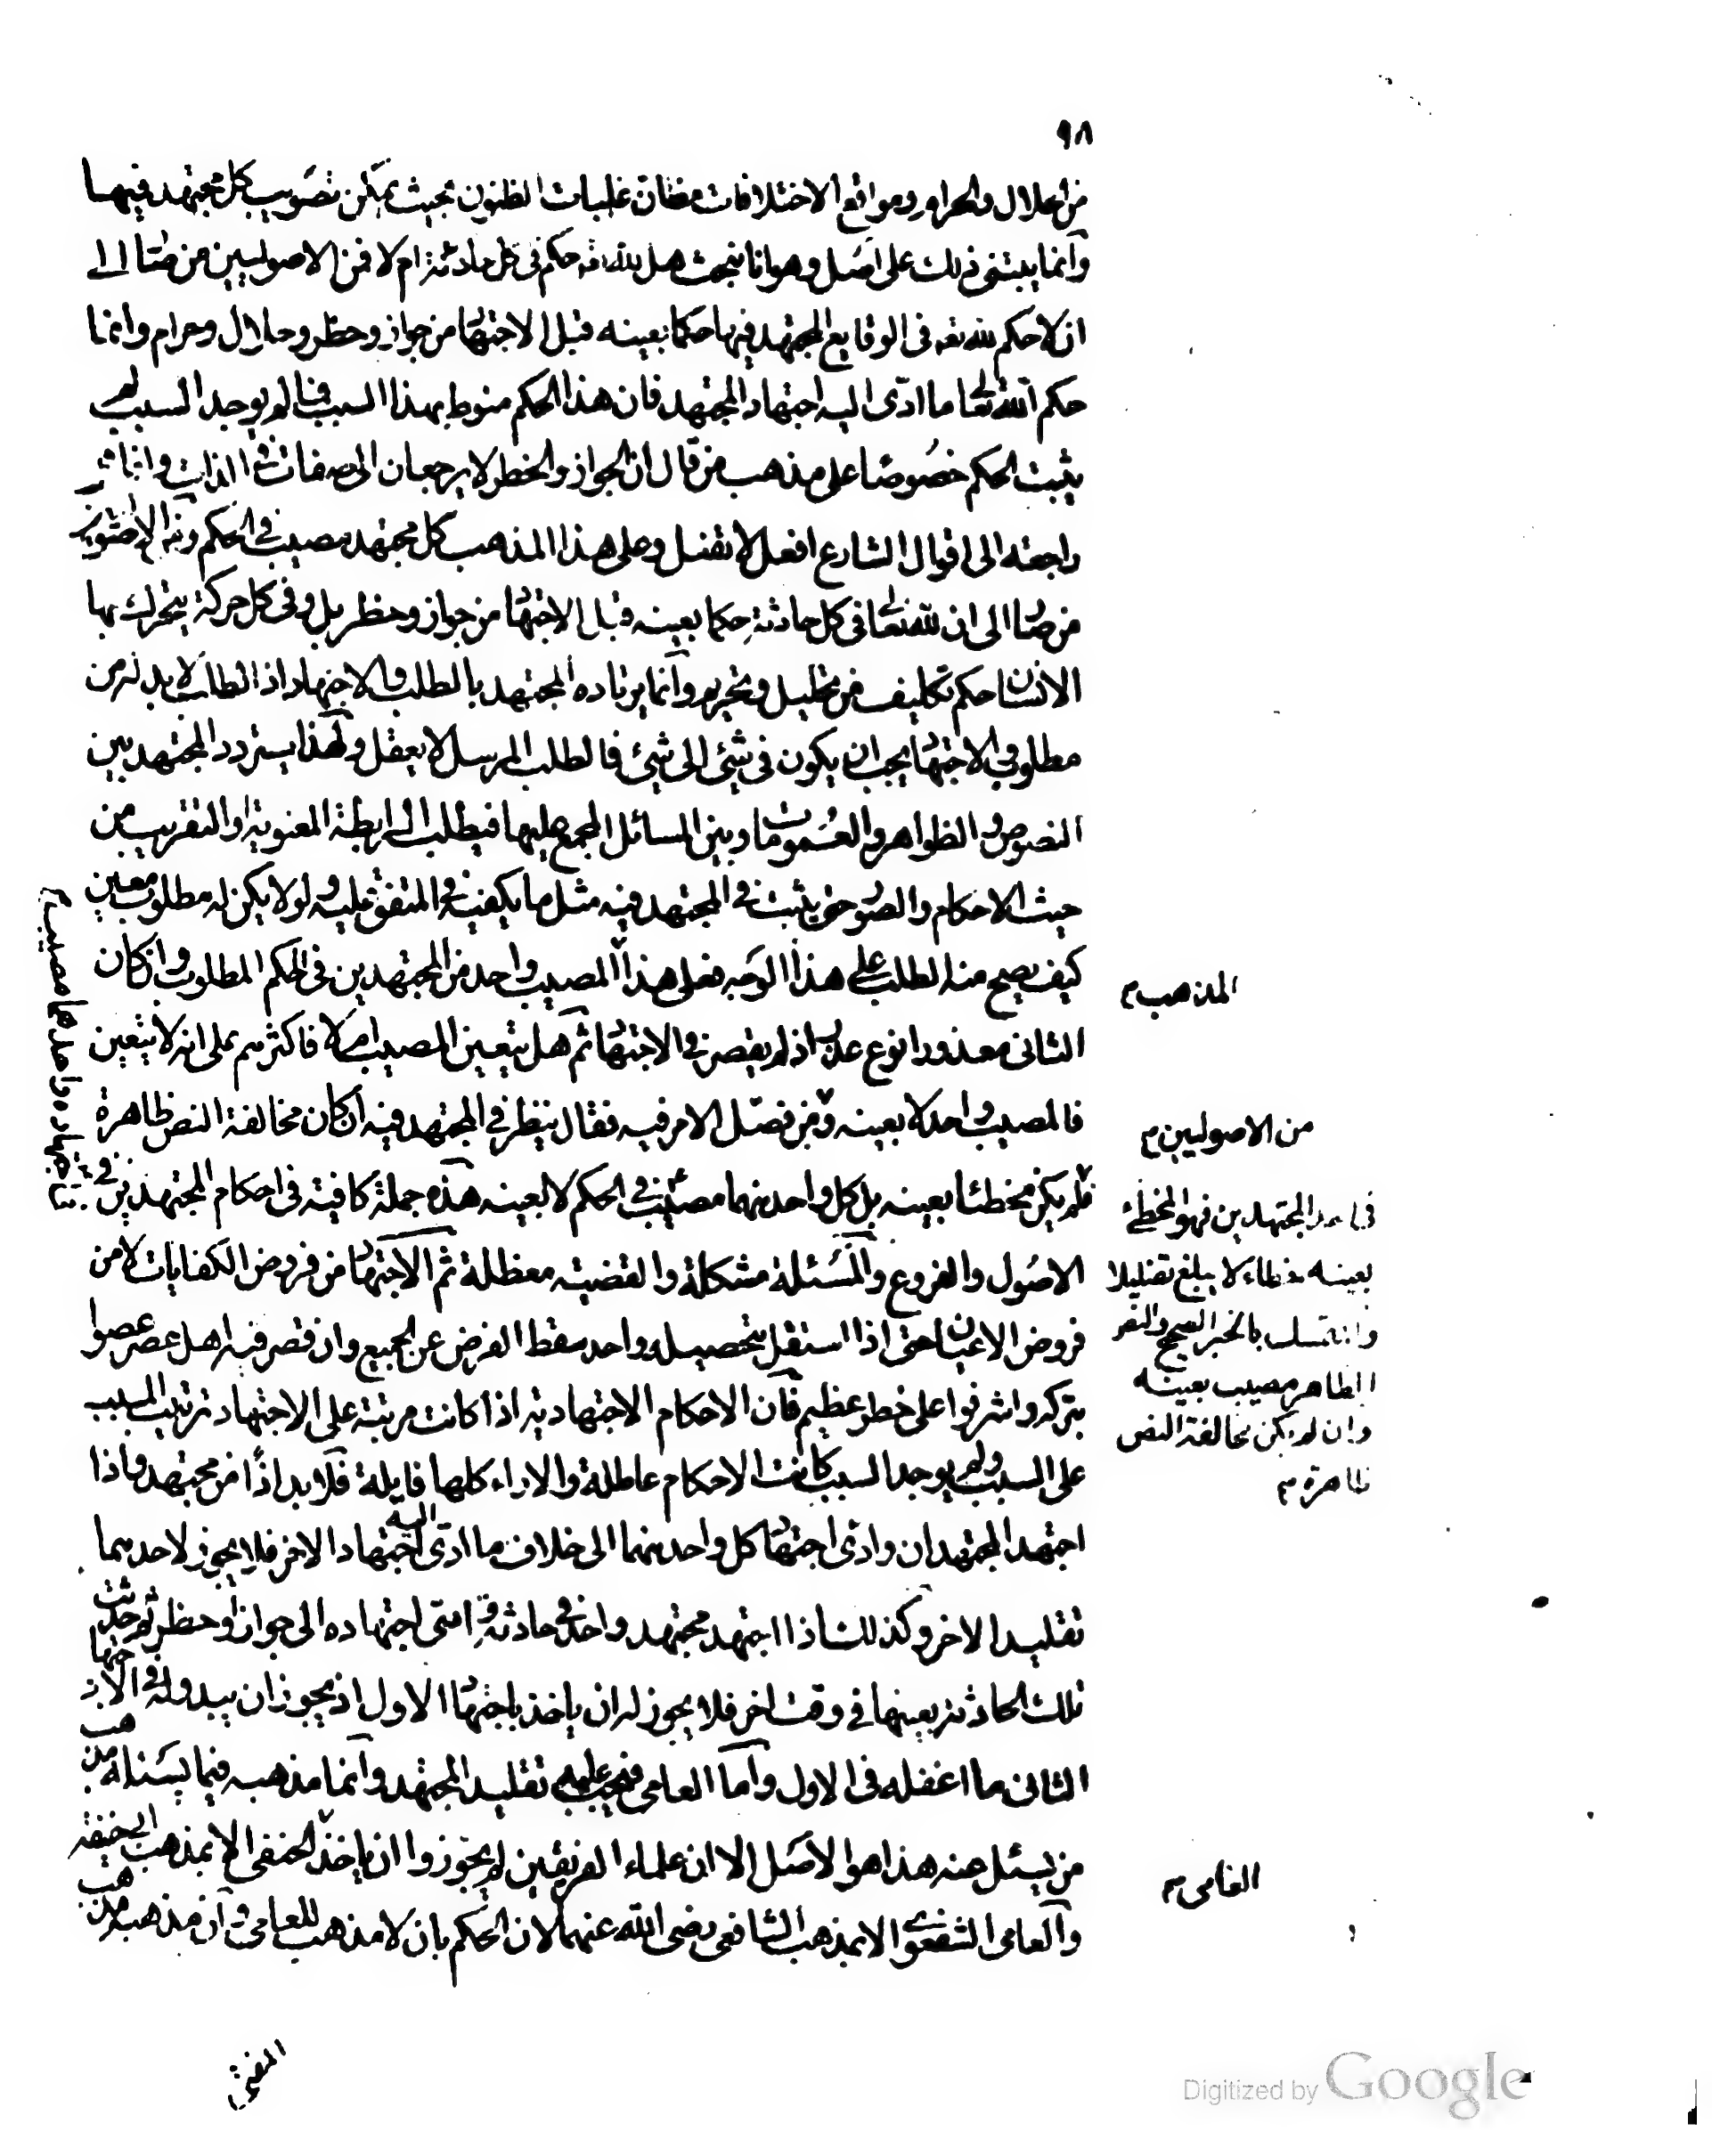 ٩٨
من الحلال والحرام ومواقع الاختلافات مظان غلبات الظنون بحيث يمكن تصويب كل مجتهد فيها
وانما يبتنى ذلك على اصل وهو انا نبحث هل لله تع حكم فى كل حادثة ام لا فمن الاصوليين من صار الى
ان لا حكم لله تعه فى الوقايع المجتهد فيها حكما بعينه قبل الاجتهاد من جواز وحظر وحلال وحرام وانما
حكم الله تعالى ما ادّى اليه اجتهاد المجتهد فان هذا الحكم منوط بهذا السبب فما لم يوجد السبب لم
يثبت الحكم خصوصا على مذهب من قال ان الجواز والحظر لا يرجعان الى صفات فى الذات وانما هى
راجعة الى اقوال الشارع افعل لا تفعل وعلى هذا المذهب كل مجتهد مصيب فى الحكم ومن الاصوليين
من صار الى ان لله تعالى فى كل حادثة حكما بعينه قبل الاجتهاد من جواز وحظر بل وفى كل حركة يتحرك بها
الانسان حكم تكليف من تحليل وتحريم وانما يرتاده المجتهد بالطلب والاجتهاد اذ الطلب لا بد له من
مطلوب والاجتهاد يجب ان يكون فى شئ الى شئ فالطلب المرسل لا يعقل ولهذا يتردد المجتهد بين
النصوص والظواهر والعمومات وبين المسائل المجمع عليها فيطلب الرابطة المعنوية او التقريب من
حيث الاحكام والصور حتى يثبت فى المجتهد فيه مثل ما يكفيه فى المتفق عليه ولو لا يكن له مطلوب معين
كيف يصح منه الطلب على هذا الوجه فعلى هذا المصيب واحد من المجتهدين فى الحكم المطلوب وان كان
المذهب م
الثانى معذورا نوع عذر اذ لم يقصر فى الاجتهاد ثم هل يتعين المصيب ام لا فاكثرهم على انه لا يتعين
فالمصيب واحد لا بعينه ومن فصّل الامر فيه فقال ينظر فى المجتهد فيه ان كان مخالفة النص ظاهرة
من الاصوليين م
فلم يكن مخطئا بعينه بل كل واحد منهما مصيب فى الحكم لا بعينه هذه جملة كافية فى احكام المجتهدين فى
المجتهدين فهو المخطئ
بعينه خطاء لا يبلغ تضليلا
والمتمسك بالخبر الصحيح والنص
الظاهر مصيب بعينه
وان لم يكن مخالفة النص
ظاهرة م
الاصول والفروع والمسئلة مشكلة والقضية معظلة ثم الاجتهاد من فروض الكفايات لا من
فروض الاعيان حتى اذا استقل بتحصيله واحد سقط الفرض عن الجميع وان قصر فيه اهل عصر عصوا
بتركه واشرفوا على خطر عظيم فان الاحكام الاجتهادية اذا كانت مرتبة على الاجتهاد ترتيب المسبب
على السبب ولم يوجد السبب كانت الاحكام عاطلة والاراء كلها فايلة فلا بد اذًا من مجتهد واذا
اجتهد المجتهدان وادى اجتهاد كل واحد منهما الى خلاف ما ادّى اليه اجتهاد الاخر فلا يجوز لاحدهما
تقليد الاخر وكذلك اذا اجتهد مجتهد واحد فى حادثة وادى اجتهاده الى جواز او حظر ثم حدثت
تلك الحادثة بعينها فى وقت اخر فلا يجوز له ان ياخذ باجتهاده الاول اذ يجوز ان يبدو له فى الاجتهاد
الثانى ما اغفله فى الاول واما العامى فيجب عليه تقليد المجتهد وانما مذهبه فيما يسئله مذهب
من يسئل عنه هذا هو الاصل الا ان علماء الفريقين لم يجوزوا ان ياخذ الحنفى الا بمذهب ابى حنيفة
العامى م
والعامى الشفعوى الا بمذهب الشافعى رضى الله عنهما لان الحكم بان لا مذهب للعامى وان مذهبه مذهب
المفتى
Digitized by Google